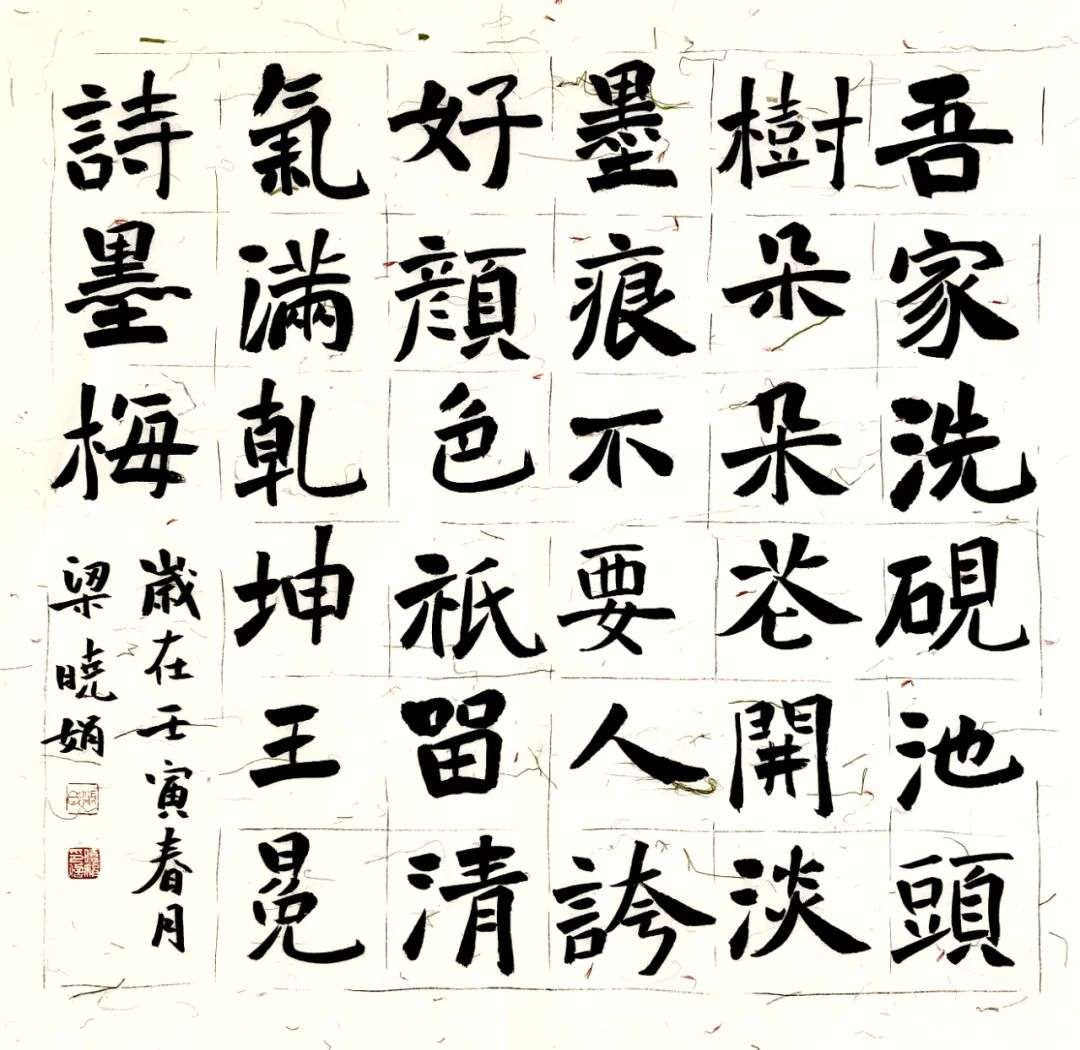 吾家洗硯池頭
樹朵朵花開淡
墨痕不要人誇
好顏色祇留清
氣滿乾坤王冕
詩墨梅
歲在壬寅春月
梁曉娟